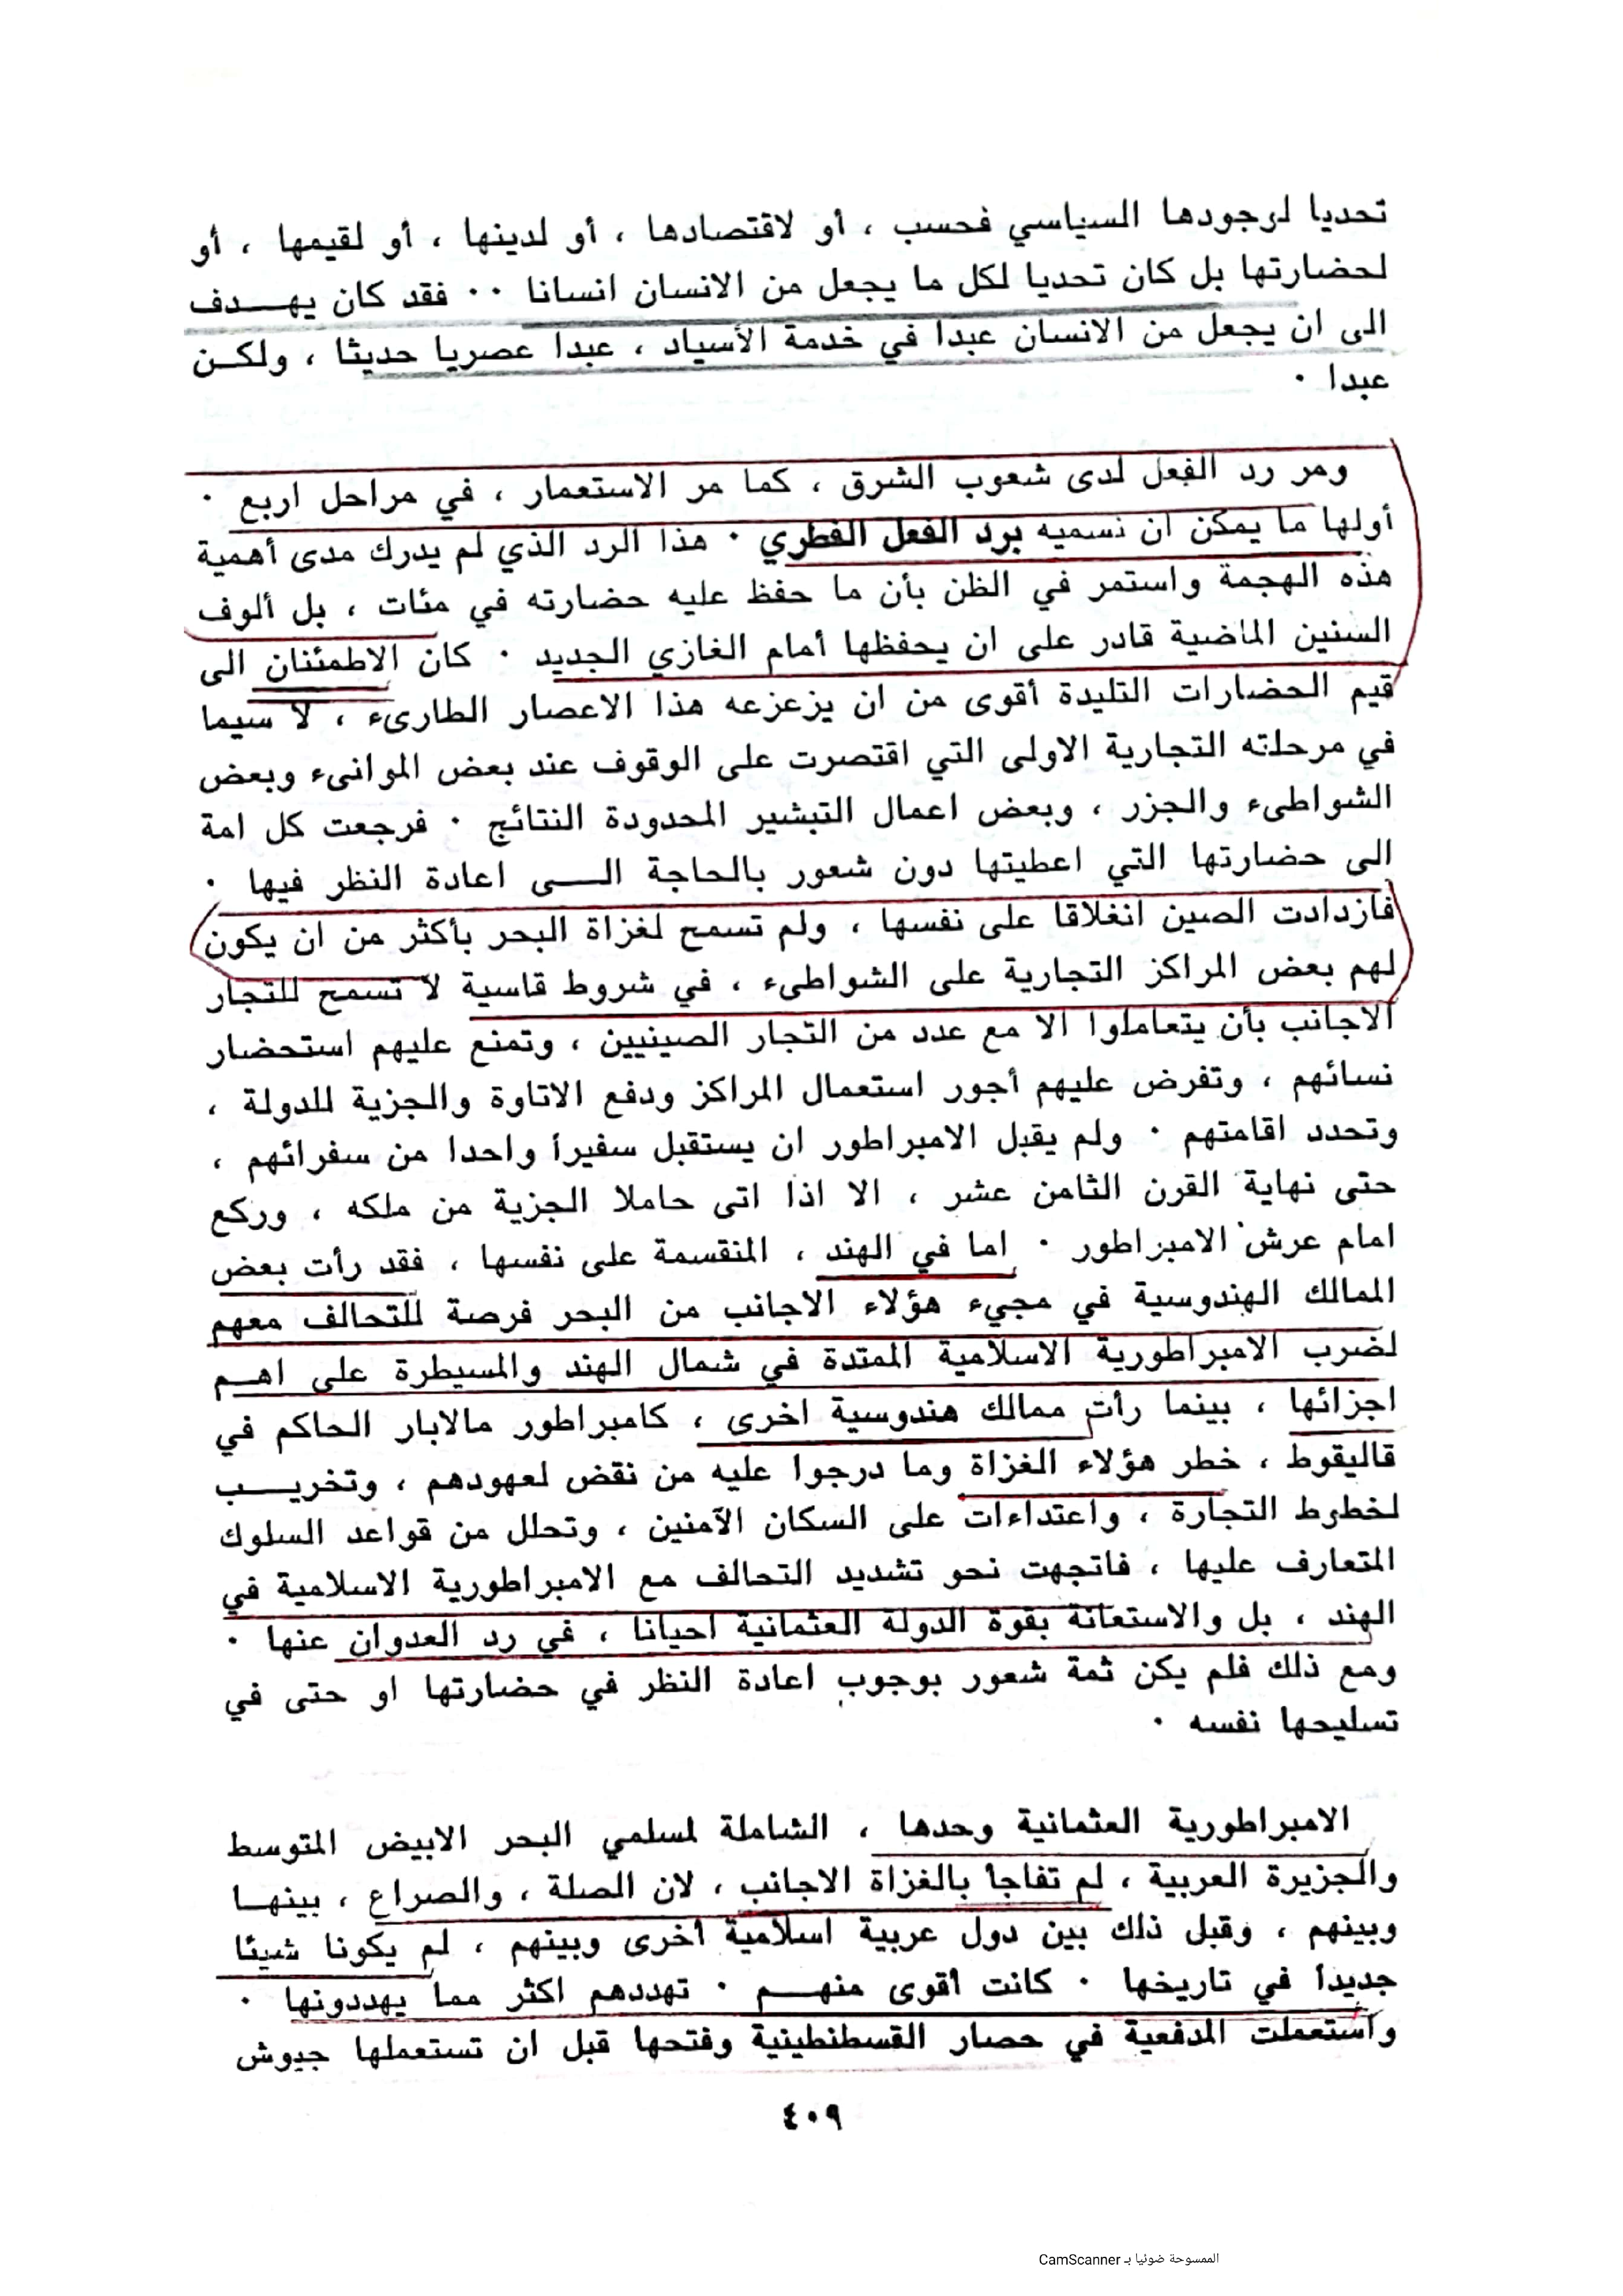 تحديا لوجودها السياسي فحسب ، أو لاقتصادها ، أو لدينها ، أو لقيمها ، أو
لحضارتها بل كان تحديا لكل ما يجعل من الانسان انسانا ٠٠ فقد كان يهـــدف
الى ان يجعل من الانسان عبدا في خدمة الأسياد ، عبدا عصريا حديثا ، ولكـن
عبدا ٠
ومر رد الفعل لدى شعوب الشرق ، كما مر الاستعمار ، في مراحل اربع ٠
أولها ما يمكن ان نسميه برد الفعل الفطري ٠ هذا الرد الذي لم يدرك مدى أهمية
هذه الهجمة واستمر في الظن بأن ما حفظ عليه حضارته في مئات ، بل ألوف
السنين الماضية قادر على ان يحفظها أمام الغازي الجديد ٠ كان الاطمئنان الى
قيم الحضارات التليدة أقوى من ان يزعزعه هذا الاعصار الطارىء ، لا سيما
في مرحلته التجارية الاولى التي اقتصرت على الوقوف عند بعض الموانىء وبعض
الشواطىء والجزر ، وبعض اعمال التبشير المحدودة النتائج ٠ فرجعت كل امة
الى حضارتها التي اعطيتها دون شعور بالحاجة الـــى اعادة النظر فيها ٠
فازدادت الصين انغلاقا على نفسها ، ولم تسمح لغزاة البحر بأكثر من ان يكون
لهم بعض المراكز التجارية على الشواطىء ، في شروط قاسية لا تسمح للتجار
الاجانب بأن يتعاملوا الا مع عدد من التجار الصينيين ، وتمنع عليهم استحضار
نسائهم ، وتفرض عليهم أجور استعمال المراكز ودفع الاتاوة والجزية للدولة ،
وتحدد اقامتهم ٠ ولم يقبل الامبراطور ان يستقبل سفيرا واحدا من سفرائهم ،
حتى نهاية القرن الثامن عشر ، الا اذا اتى حاملا الجزية من ملكه ، وركع
امام عرش الامبراطور ٠ اما في الهند ، المنقسمة على نفسها ، فقد رأت بعض
الممالك الهندوسية في مجيء هؤلاء الاجانب من البحر فرصة للتحالف معهم
لضرب الامبراطورية الاسلامية الممتدة في شمال الهند والمسيطرة على اهـم
اجزائها ، بينما رأت ممالك هندوسية اخرى ، كامبراطور مالابار الحاكم في
قاليقوط ، خطر هؤلاء الغزاة وما درجوا عليه من نقض لعهودهم ، وتخريـــب
لخطوط التجارة ، واعتداءات على السكان الآمنين ، وتحلل من قواعد السلوك
المتعارف عليها ، فاتجهت نحو تشديد التحالف مع الامبراطورية الاسلامية في
الهند ، بل والاستعانة بقوة الدولة العثمانية احيانا ، في رد العدوان عنها ٠
ومع ذلك فلم يكن ثمة شعور بوجوب اعادة النظر في حضارتها او حتى في
تسليحها نفسه ٠
الامبراطورية العثمانية وحدها ، الشاملة لمسلمي البحر الابيض المتوسط
والجزيرة العربية ، لم تفاجأ بالغزاة الاجانب ، لان الصلة ، والصراع ، بينهـا
وبينهم ، وقبل ذلك بين دول عربية اسلامية أخرى وبينهم ، لم يكونا شيئا
جديدا في تاريخها ٠ كانت أقوى منهـــم ٠ تهددهم اكثر مما يهددونها ٠
واستعملت المدفعية في حصار القسطنطينية وفتحها قبل ان تستعملها جيوش
٤٠٩
الممسوحة ضوئيا بـ CamScanner